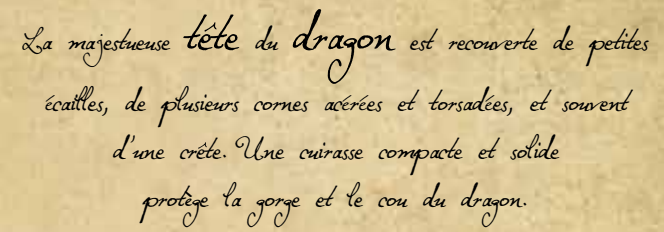 La majestueuse tête du dragon est recouverte de petites
écailles, de plusieurs cornes acérées et torsadées, et souvent
d'une crête. Une cuirasse compacte et solide
protège la gorge et le cou du dragon.